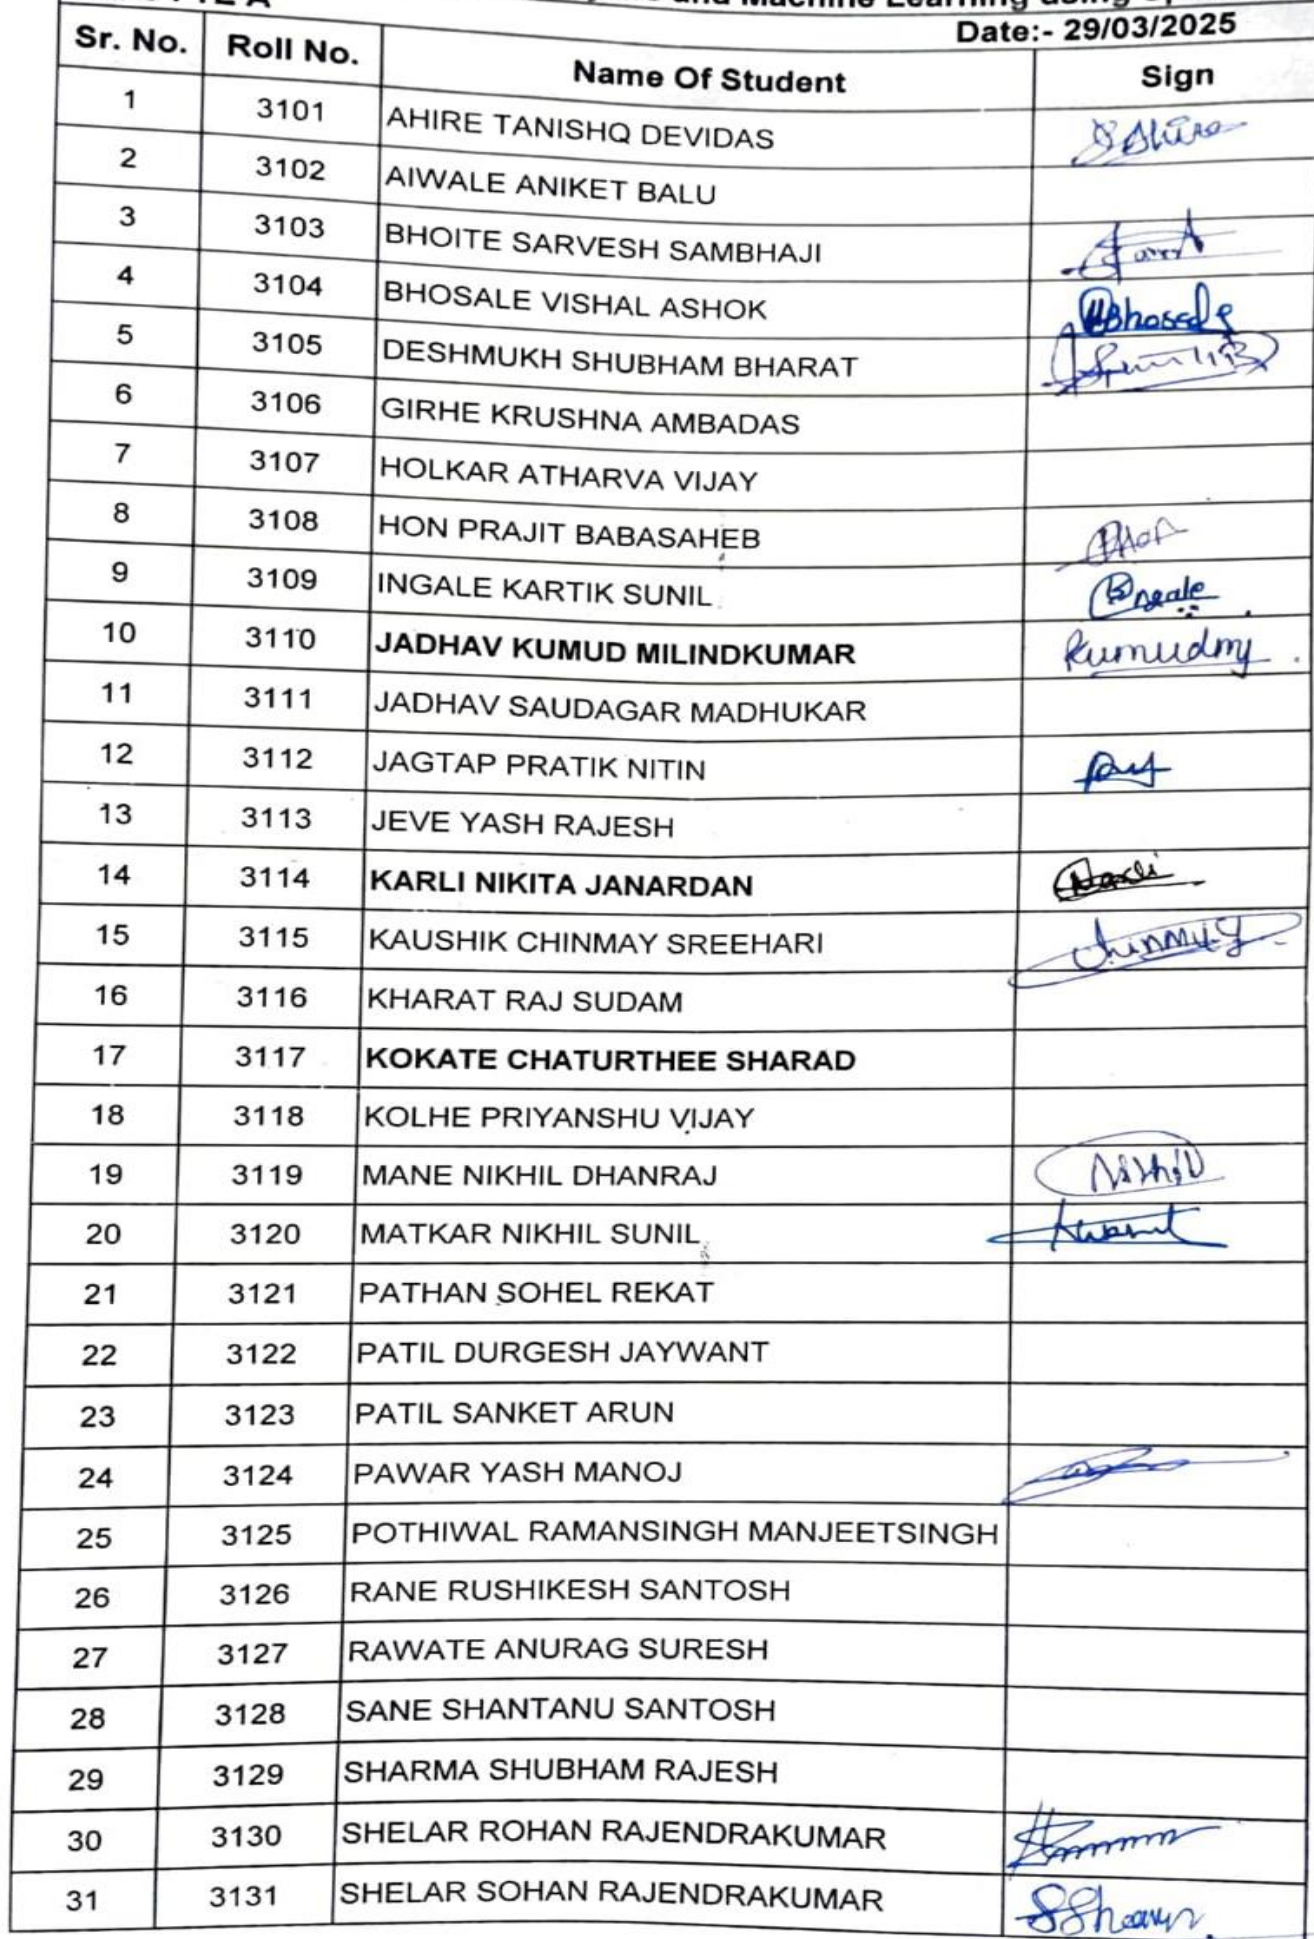 and Machine Learning using
Date:- 29/03/2025
Sr. No. Roll No. Name Of Student Sign
1 3101 AHIRE TANISHQ DEVIDAS Ahire
2 3102 AIWALE ANIKET BALU
3 3103 BHOITE SARVESH SAMBHAJI
4 3104 BHOSALE VISHAL ASHOK Bhosale
5 3105 DESHMUKH SHUBHAM BHARAT
6 3106 GIRHE KRUSHNA AMBADAS
7 3107 HOLKAR ATHARVA VIJAY
8 3108 HON PRAJIT BABASAHEB PHon
9 3109 INGALE KARTIK SUNIL
10 3110 JADHAV KUMUD MILINDKUMAR Kumudmj
11 3111 JADHAV SAUDAGAR MADHUKAR
12 3112 JAGTAP PRATIK NITIN
13 3113 JEVE YASH RAJESH
14 3114 KARLI NIKITA JANARDAN
15 3115 KAUSHIK CHINMAY SREEHARI Chinmay
16 3116 KHARAT RAJ SUDAM
17 3117 KOKATE CHATURTHEE SHARAD
18 3118 KOLHE PRIYANSHU VIJAY
19 3119 MANE NIKHIL DHANRAJ Nikhil
20 3120 MATKAR NIKHIL SUNIL
21 3121 PATHAN SOHEL REKAT
22 3122 PATIL DURGESH JAYWANT
23 3123 PATIL SANKET ARUN
24 3124 PAWAR YASH MANOJ
25 3125 POTHIWAL RAMANSINGH MANJEETSINGH
26 3126 RANE RUSHIKESH SANTOSH
27 3127 RAWATE ANURAG SURESH
28 3128 SANE SHANTANU SANTOSH
29 3129 SHARMA SHUBHAM RAJESH
30 3130 SHELAR ROHAN RAJENDRAKUMAR
31 3131 SHELAR SOHAN RAJENDRAKUMAR